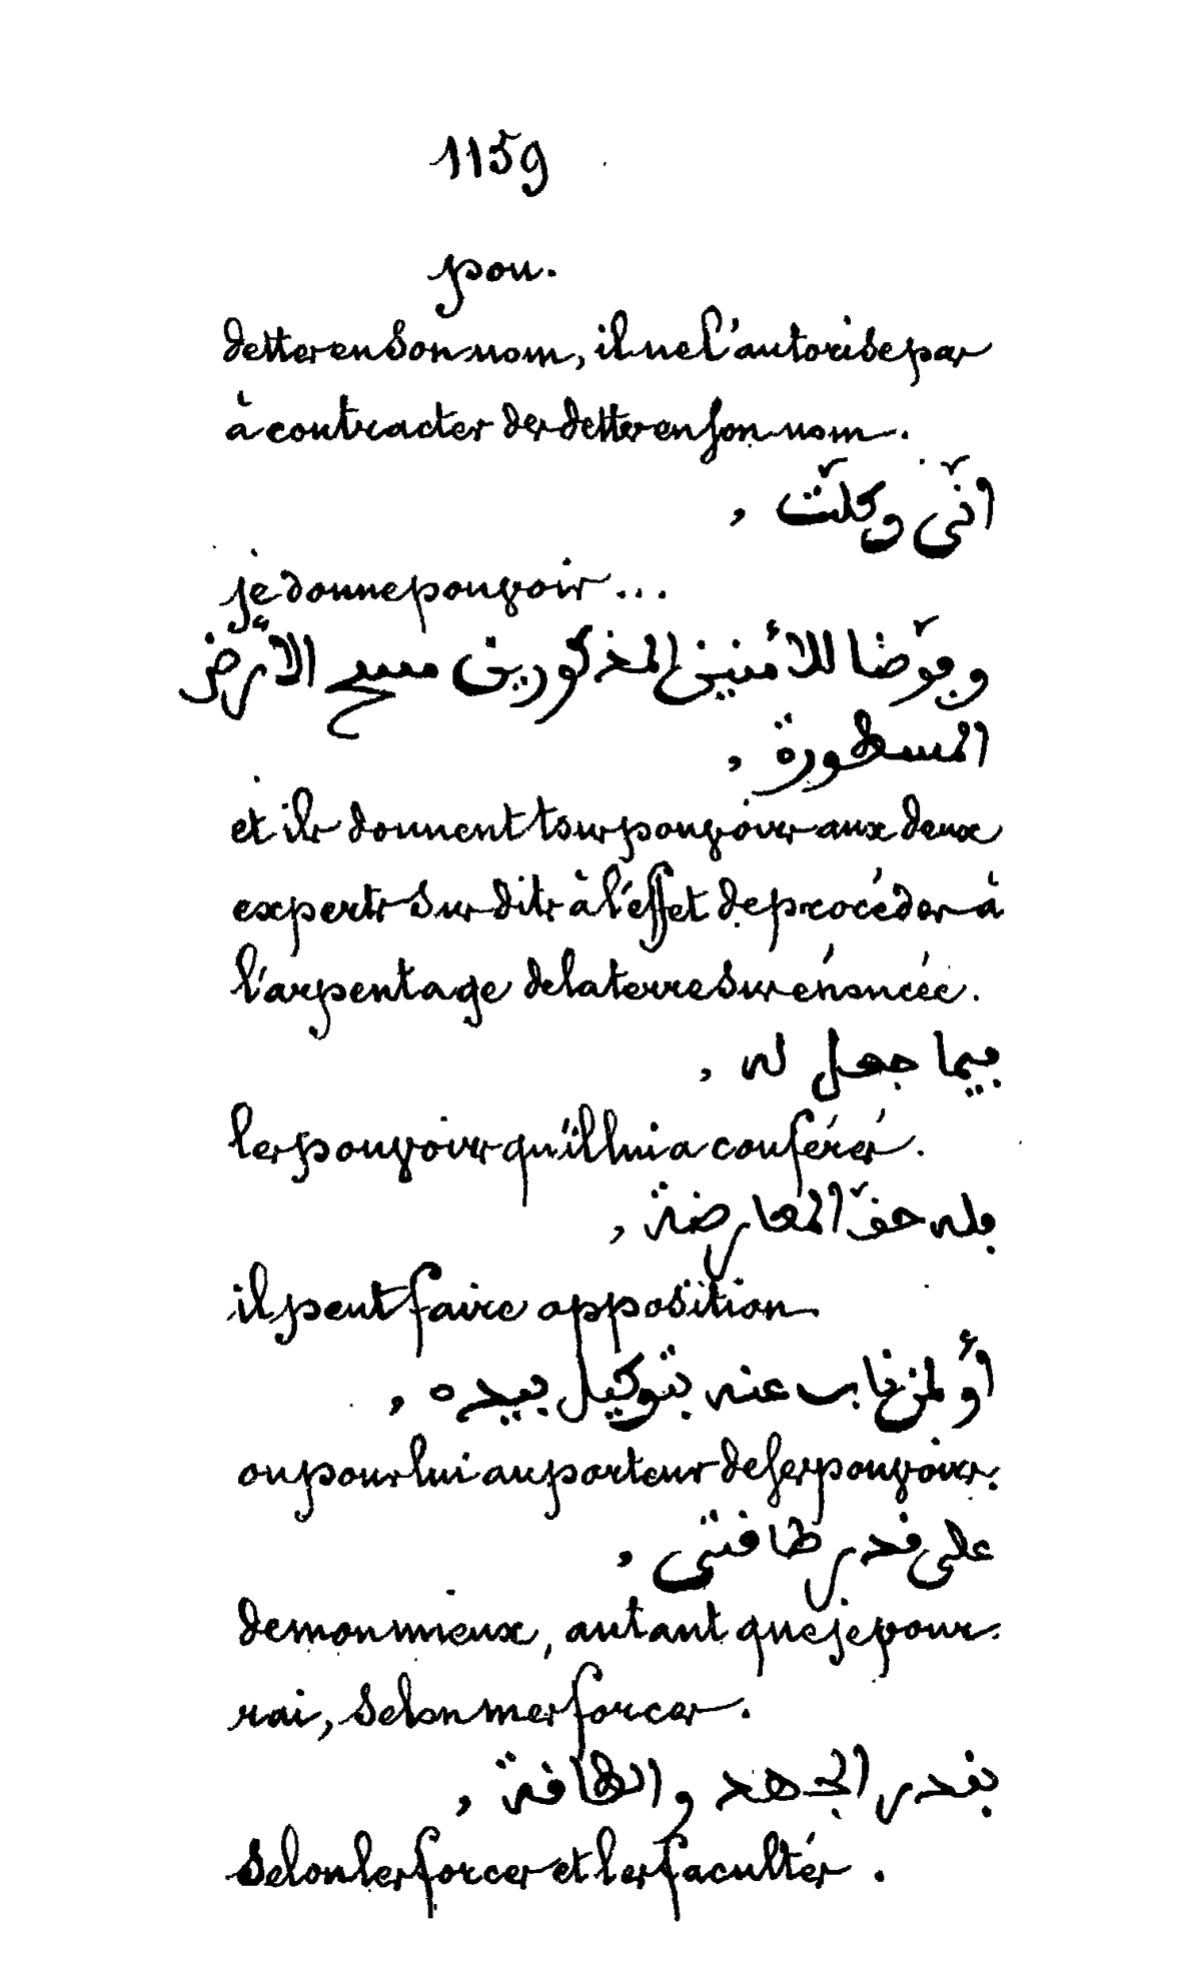 1159
pou.
dettes en son nom, il ne l'autorise pas
à contracter des dettes en son nom.
انّى وكلّت ,
je donne pouvoir...
وڢوّضا للأمنين المذكورين مسح الأرض
المسطورة ,
et ils donnent tous pouvoirs aux deux
experts sus dits à l'effet de procéder à
l'arpentage de la terre sus énoncée.
ڢيما جعل له ,
les pouvoirs qu'il lui a conférés.
ڢله حقّ المعارضة ,
il peut faire opposition.
أو لمن غاب عنه بتوكيل بيده ,
ou pour lui au porteur de ses pouvoirs.
على ڧدر طاڧتى ,
de mon mieux, autant que je pour-
rai, selon mes forces.
بڧدر الجهد والطاڧة ,
selon les forces et les facultés.